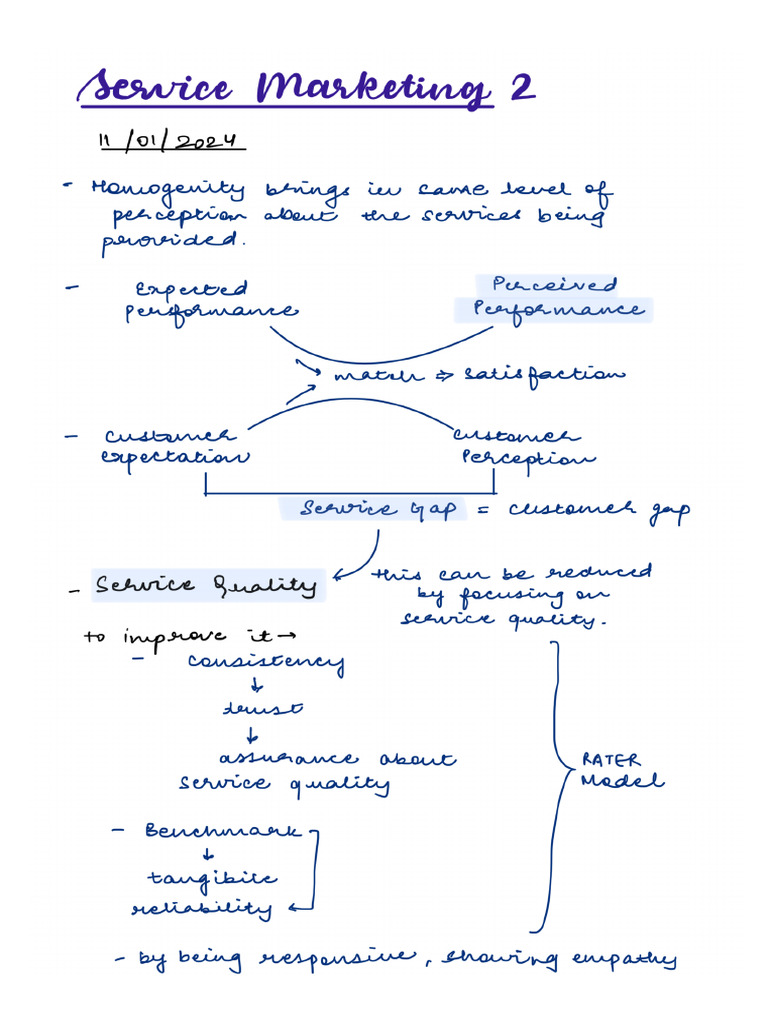 Service Marketing 2
11/01/2024
- Homogenity brings in same level of
perception about the services being
provided.
- Expected Perceived
performance Performance
match ⇒ satisfaction
- customer customer
expectation Perception
Service Gap = customer gap
this can be reduced
- Service Quality
by focusing on
service quality.
to improve it →
- consistency
↓
trust
↓
assurance about
service quality
RATER
Model
- Benchmark
↓
tangibile
reliability
- by being responsive, showing empathy